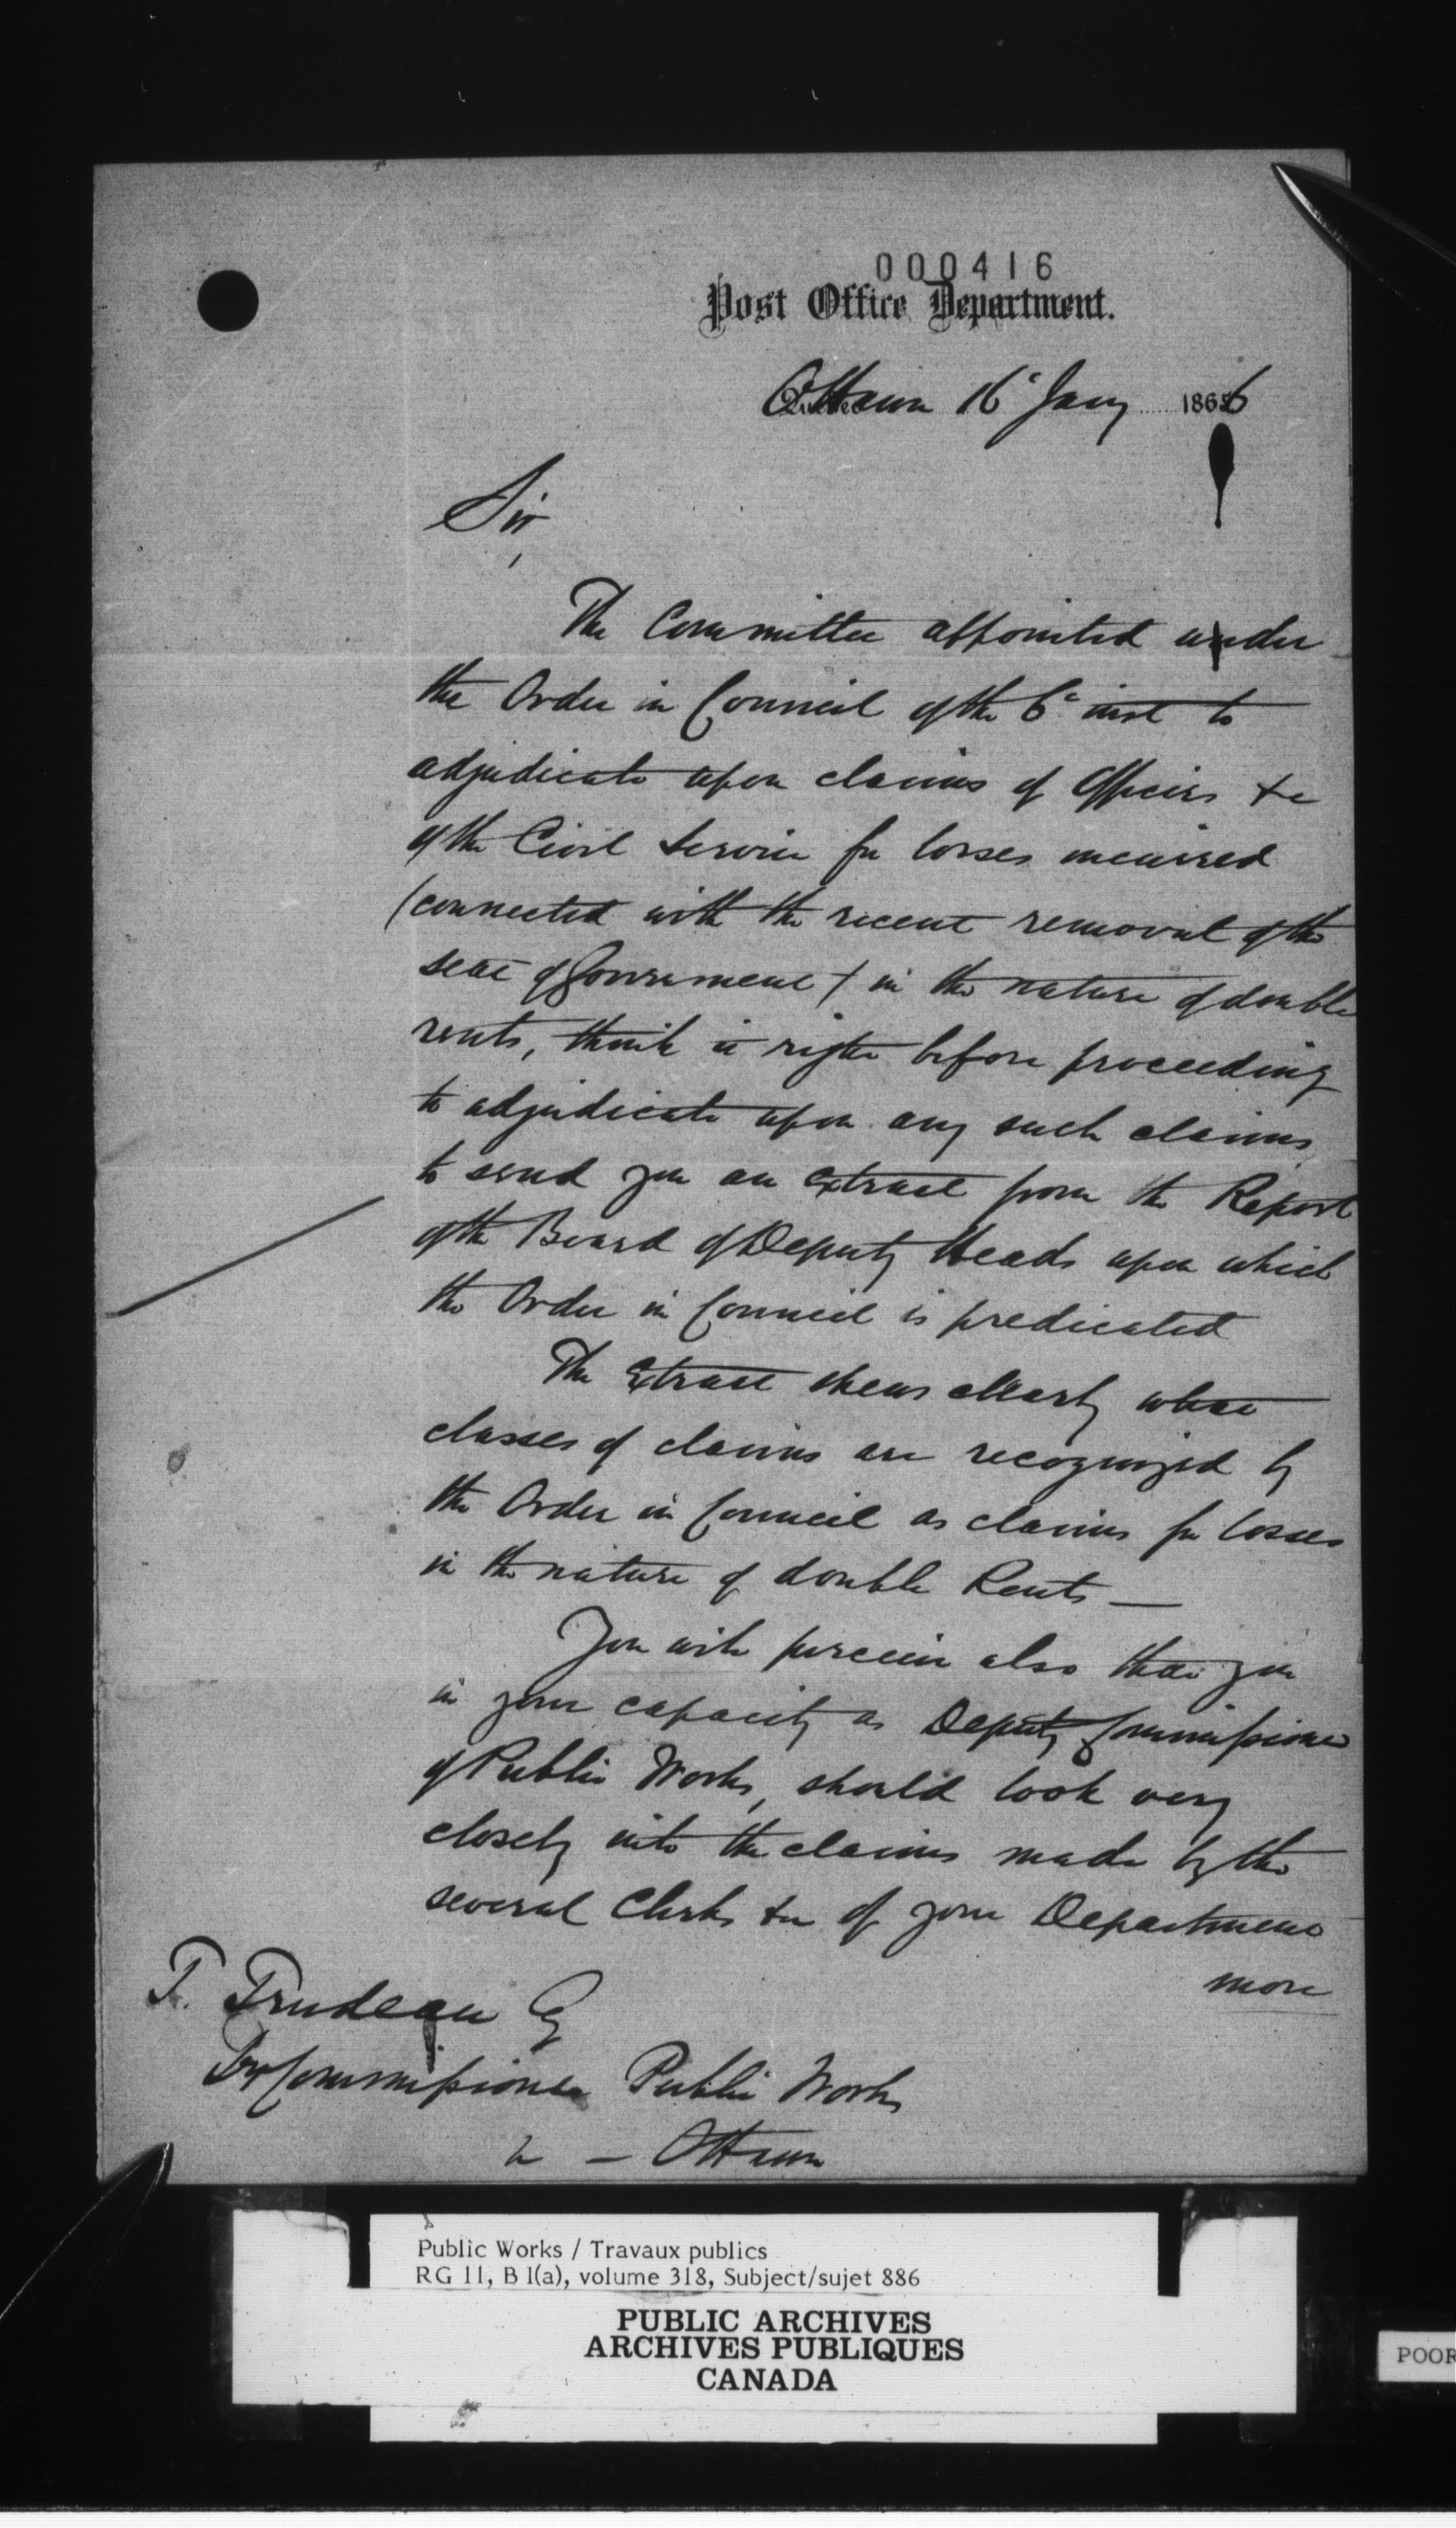 000416
Post Office Department.
Ottawa 16 Jany 1866
Sir,
The Committee appointed under
the Order in Council of the 6th inst to
adjudicate upon claims of Officers &c
of the Civil Service for losses incurred
(connected with the recent removal of the
seat of Government) in the nature of double
rents, think it right before proceeding
to adjudicate upon any such claims
to send you an Extract from the Report
of the Board of Deputy Heads upon which
the Order in Council is predicated
The Extract shews clearly what
classes of claims are recognized by
the Order in Council as claims for losses
in the nature of double Rents —
You will perceive also that you
in your capacity as Deputy Commissioner
of Public Works, should look very
closely into the claims made by the
several Clerks &c of your Department
more
T. Trudeau Esq
Dy Commissioner Public Works
— Ottawa
Public Works / Travaux publics
RG 11, B 1(a), volume 318, Subject/sujet 886
PUBLIC ARCHIVES
ARCHIVES PUBLIQUES
CANADA
POOR